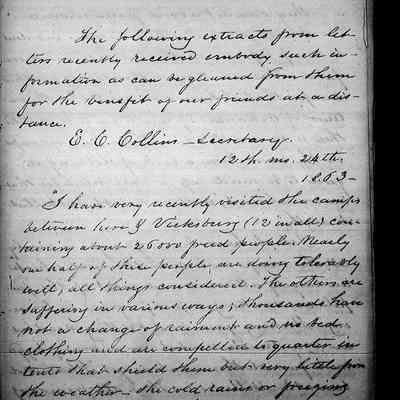 The following extracts from let-
ters recently received embody such in-
formation as can be gleaned from them
for the benefit of our friends at a dis-
tance.
E. C. Collins – Secretary.
12th. mo. 24th.
1863–
"I have very recently visited the camps
between here & Vicksburg (12 in all) con-
taining about 26000 freed people. Nearly
one half of these people are doing tolerably
well, all things considered. The others are
suffering in various ways; thousands have
not a change of raiment and no bed-
clothing and are compelled to quarter in
tents that shield them but very little from
the weather – the cold rains or freezing